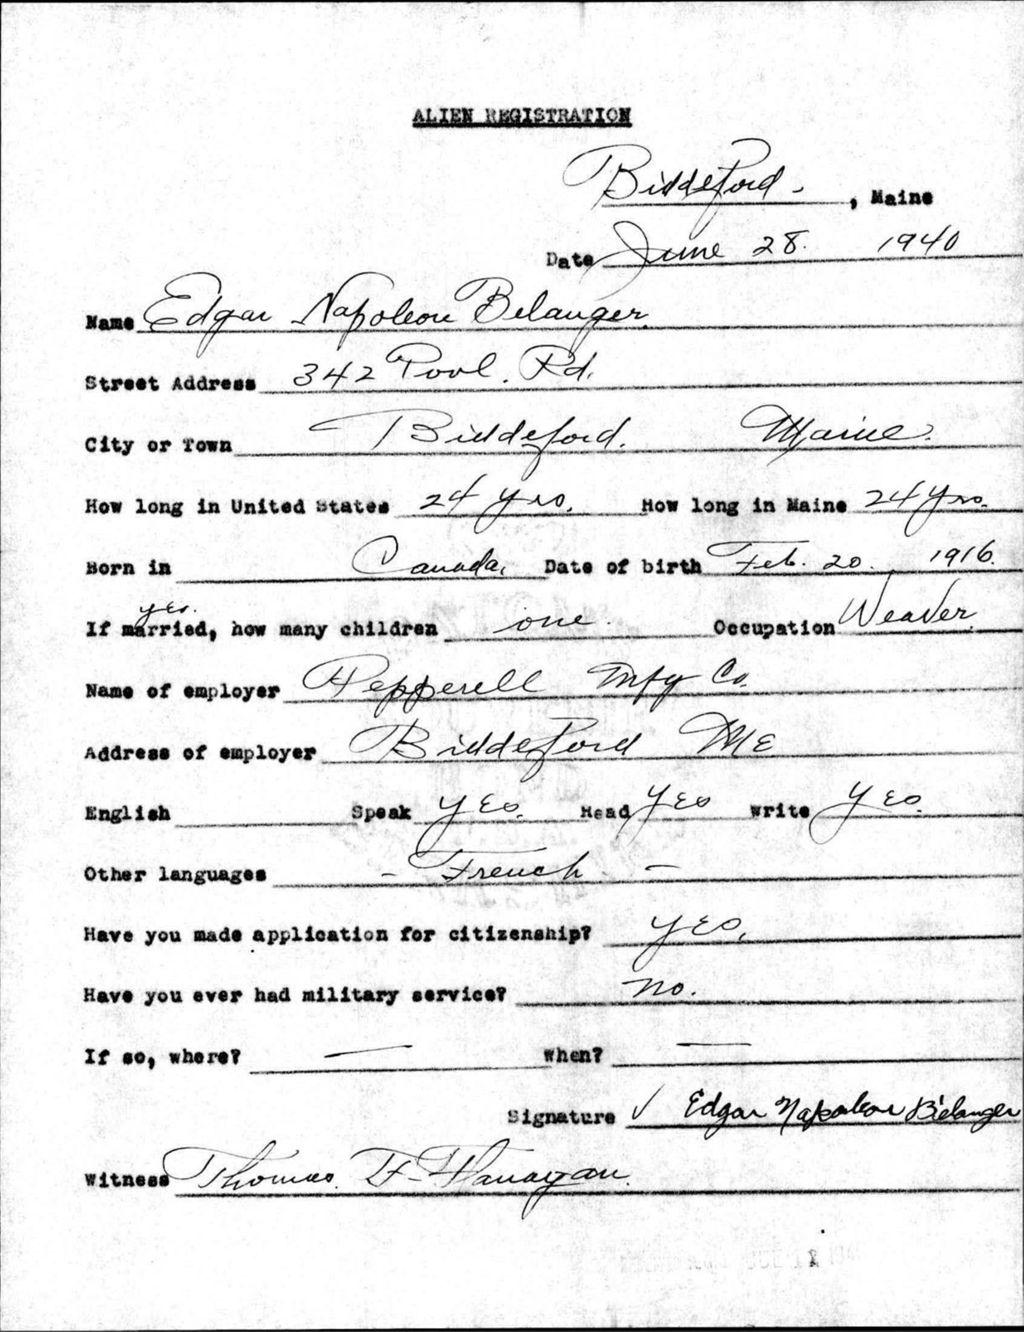 ALIEN REGISTRATION
Biddeford. , Maine
Date June 28. 1940
Name Edgar Napoleon Belanger.
Street Address 342 Pool. Rd.
City or Town Biddeford. Maine.
How long in United States 24 yrs. How long in Maine 24 yrs.
Born in Canada, Date of birth Feb. 20. 1916.
yes.
If married, how many children one. Occupation Weaver.
Name of employer Pepperell Mfg Co.
Address of employer Biddeford ME
English Speak yes. Read yes Write yes.
Other languages - French -
Have you made application for citizenship? yes.
Have you ever had military service? no.
If so, where? — When? —
Signature ✓ Edgar Napoleon Bélanger
Witness Thomas. F. Flanagan.